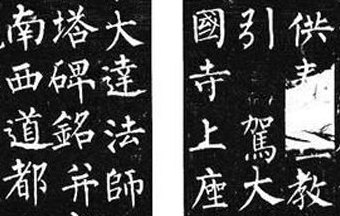 供教
引駕大
國寺上座
大達法師
塔碑銘并
南西道都